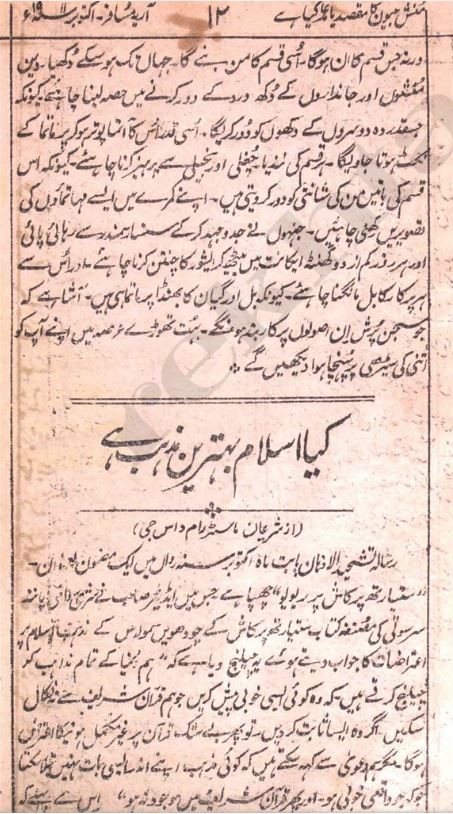 منش جیون کا مقصد یا مدعا کیا ہے ۱۲ آریہ مسافر۔ اکتوبر
ورنہ جس قسم کا ان ہوگا۔ اُسی قسم کا من بنے گا۔ جہاں تک ہو سکے دُکھیا۔ دین
منشوں اور جانداروں کے دُکھ درد کے دور کرنے میں حصہ لینا چاہئے کیونکہ
جسقدر وہ دوسروں کے دکھوں کو دُور کریگا۔ اُسی قدر اُس کا آتما پوتر ہو کر پرماتما کے
نکٹ ہوتا جاویگا۔ ہر قسم کی نندیا چغلی اور بخیلی سے پرہیز کرنا چاہئے۔ کیونکہ اس
قسم کی باتیں من کی شانتی کو دور کر دیتی ہیں۔ اپنے کمرے میں ایسے مہاتماؤں کی
تصویریں رکھنی چاہئیں۔ جنہوں نے جدوجہد کر کے سنسار سمندر سے رہائی پائی
اور ہر روز کم از کم دو گھنٹہ ایکانت میں بیٹھ کر ایشور کا چنتن کرنا چاہئے اور اُس سے
ہر پرکار کا بل مانگنا چاہئے۔ کیونکہ بل اور گیان کا بھنڈا پرماتما ہی ہیں۔ آشا ہے کہ
جو سجن پرش اِن اصولوں پر کاربند ہونگے۔ بہت تھوڑے عرصہ میں اپنے آپ کو
اُنتی کی سیڑھی پر پہنچا ہوا دیکھیں گے
کیا اسلام بہترین مذہب ہے
(از شریمان ماسٹر رام داس جی)
رسالہ تشحیذ الاذہان بابت ماہ اکتوبر سنہ رواں میں ایک مضمون
"ستیارتھ پرکاش پر ریویو" چھپا ہے جس میں ایڈیٹر صاحب نے شری
سرسوتی کی مُصنفہ کتاب ستیارتھ پرکاش کے چودھویں سمولاس کے مذہب اسلام پر
اعتراضات کا جواب دیتے ہوئے یہ چیلنج دیا ہے کہ "ہم دُنیا کے تمام مذاہب کو
چیلنج کرتے ہیں۔ کہ وہ کوئی ایسی خوبی پیش کریں جو ہم قرآن شریف سے نہ نکال
سکیں۔ اگر وہ ایسا ثابت کر دیں۔ تو پھر بے شک قرآن پر غیر مکمل ہونیکا اعتراض
ہوگا۔ مگر ہم دعویٰ سے کہہ سکتے ہیں کہ کوئی مذہب اپنے اندر ایسی بات نہیں بتلا سکتا
جو کہ واقعی خوبی ہو۔ اور پھر قرآن شریف میں موجود نہ ہو" اس سے پہلے کہ
rekhta